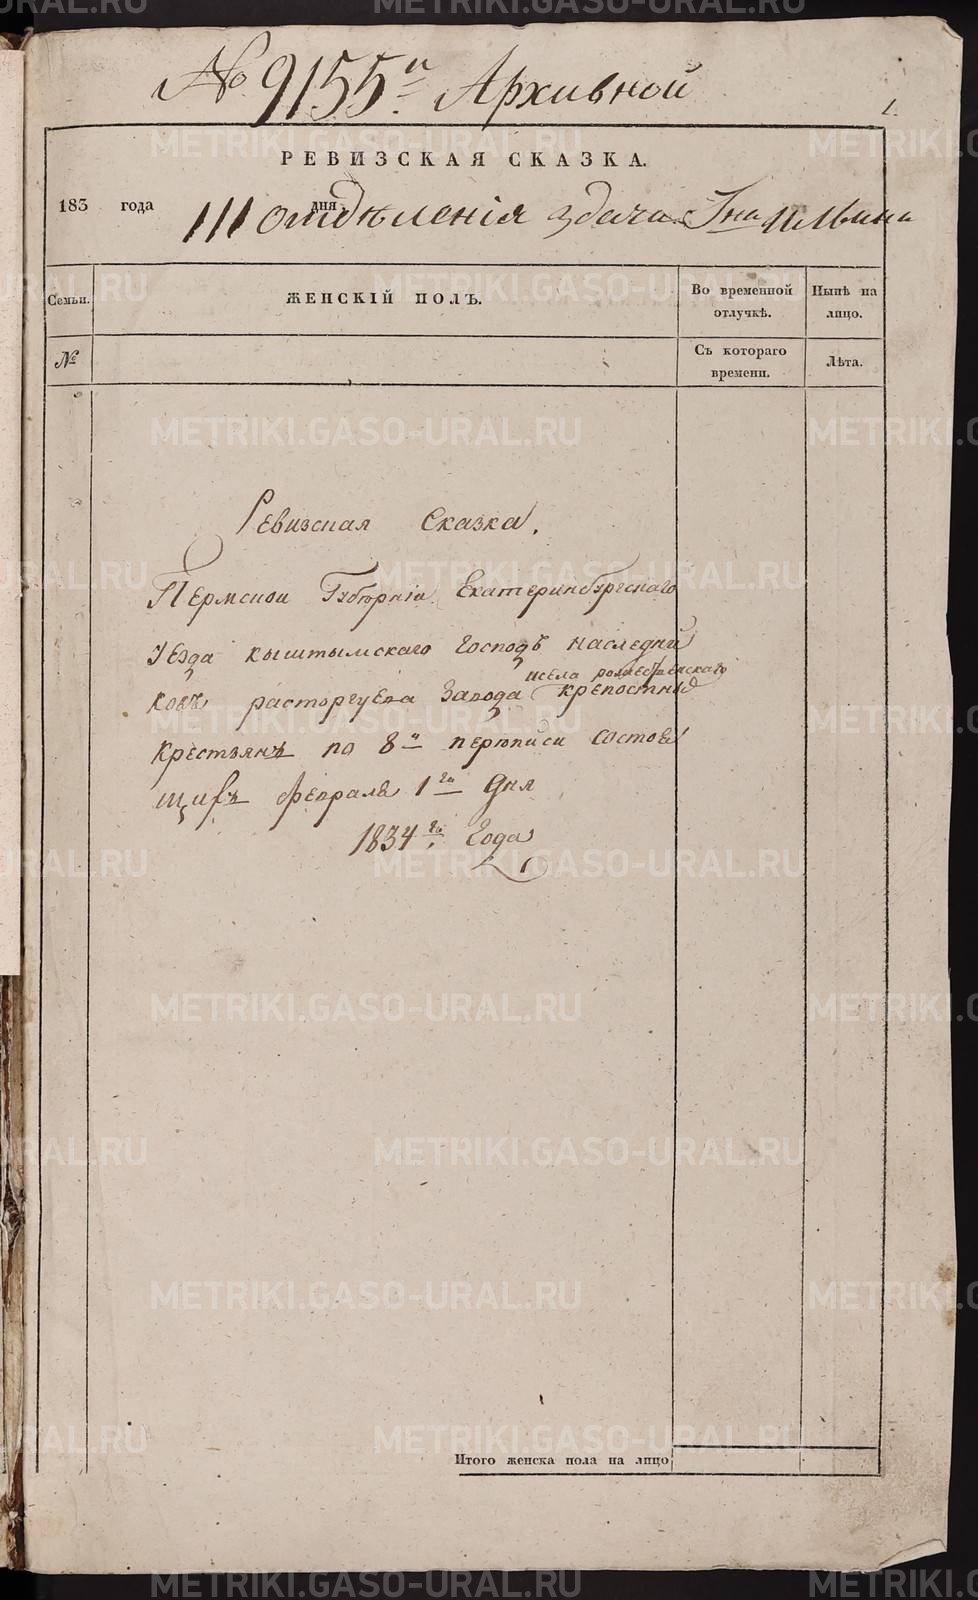 № 9155й Архивной
1.
РЕВИЗСКАЯ СКАЗКА.
183 года дня
III отдѣленія здача Гна Ильина
Семьи. ЖЕНСКІЙ ПОЛЪ. Во временной отлучкѣ. Нынѣ на лицо.
№ Съ котораго времени. Лѣта.
Ревизская Сказка.
Пермской Губерніи Екатеринбургскаго
Уезда Кыштымскаго Господъ наследни
исела рождественскаго
ковъ расторгуева Завода крепостных
крестьянъ по 8й переписи состоя
щихъ февраля 1го дня
1834го Года
Итого женска пола на лицо
METRIKI.GASO-URAL.RU